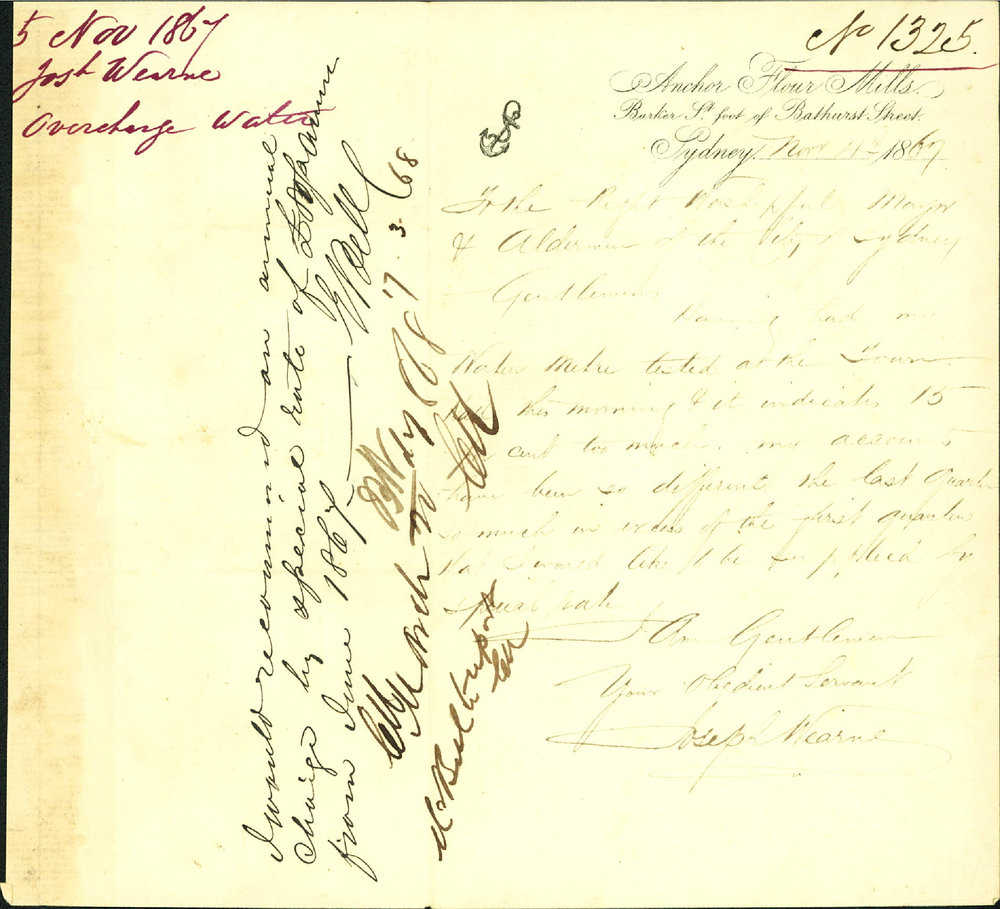 5 Nov 1867
Josh Wearne
Overcharge Water
No 1325.
Anchor Flour Mills
Barker St. foot of Bathurst Street.
Sydney Nov 4th 1867
To the Right Worshipful Mayor
& Aldermen of the City of Sydney
Gentlemen
Having had my
Water Metre tested at the Town
Hall this morning & it indicates 15
cent too much. my accounts
have been so different the last Quarter
so much in excess of the first quarter
that I would like to be supplied by
special rate
I Am Gentlemen
Your Obedient Servant
Joseph Wearne
I would recommend an annual
charge by special rate of
from June 1867
Bell
17.3.68